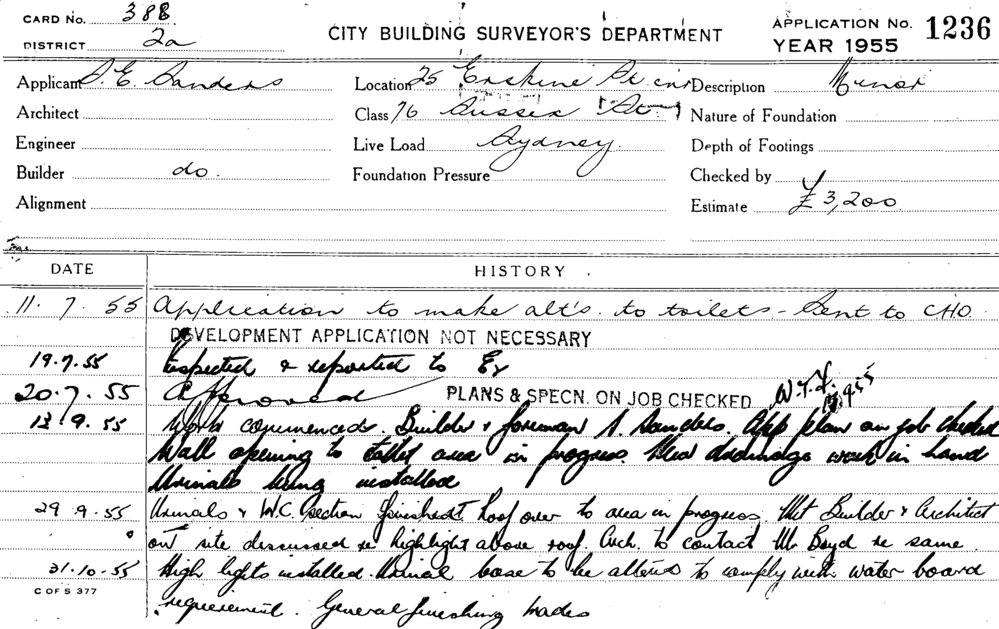 CARD No. 388
DISTRICT 2a
CITY BUILDING SURVEYOR'S DEPARTMENT
APPLICATION No. 1236
YEAR 1955
Applicant S. E. Sanders
Location 25 Erskine St cnr
Description Minor
Architect
Class 76 Sussex St.
Nature of Foundation
Engineer
Live Load Sydney.
Depth of Footings
Builder do.
Foundation Pressure
Checked by
Alignment
Estimate £3,200
DATE HISTORY
11. 7. 55 Application to make alt's. to toilets - Sent to CHO.
DEVELOPMENT APPLICATION NOT NECESSARY
19.7.55 Inspected & reported to Ex
20.7.55 Approved PLANS & SPECN. ON JOB CHECKED W.T.F. 13.9.55
13.9.55 Work commenced. Builder & foreman S. Sanders. App plan on job checked
Wall opening to toilet area in progress. New drainage work in hand
Urinals being installed
29.9.55 Urinals & W.C. section finished. Roof over to area in progress. Met Builder & Architect
on site discussed re highlight above roof. Arch. to contact Mr Boyd re same.
31.10.55 High lights installed. Urinal base to be altered to comply with water board
C OF S 377
requirement. General finishing trades